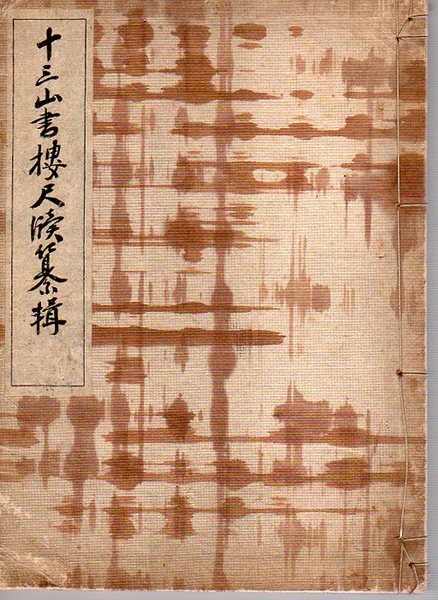 十三山書樓尺牘纂輯